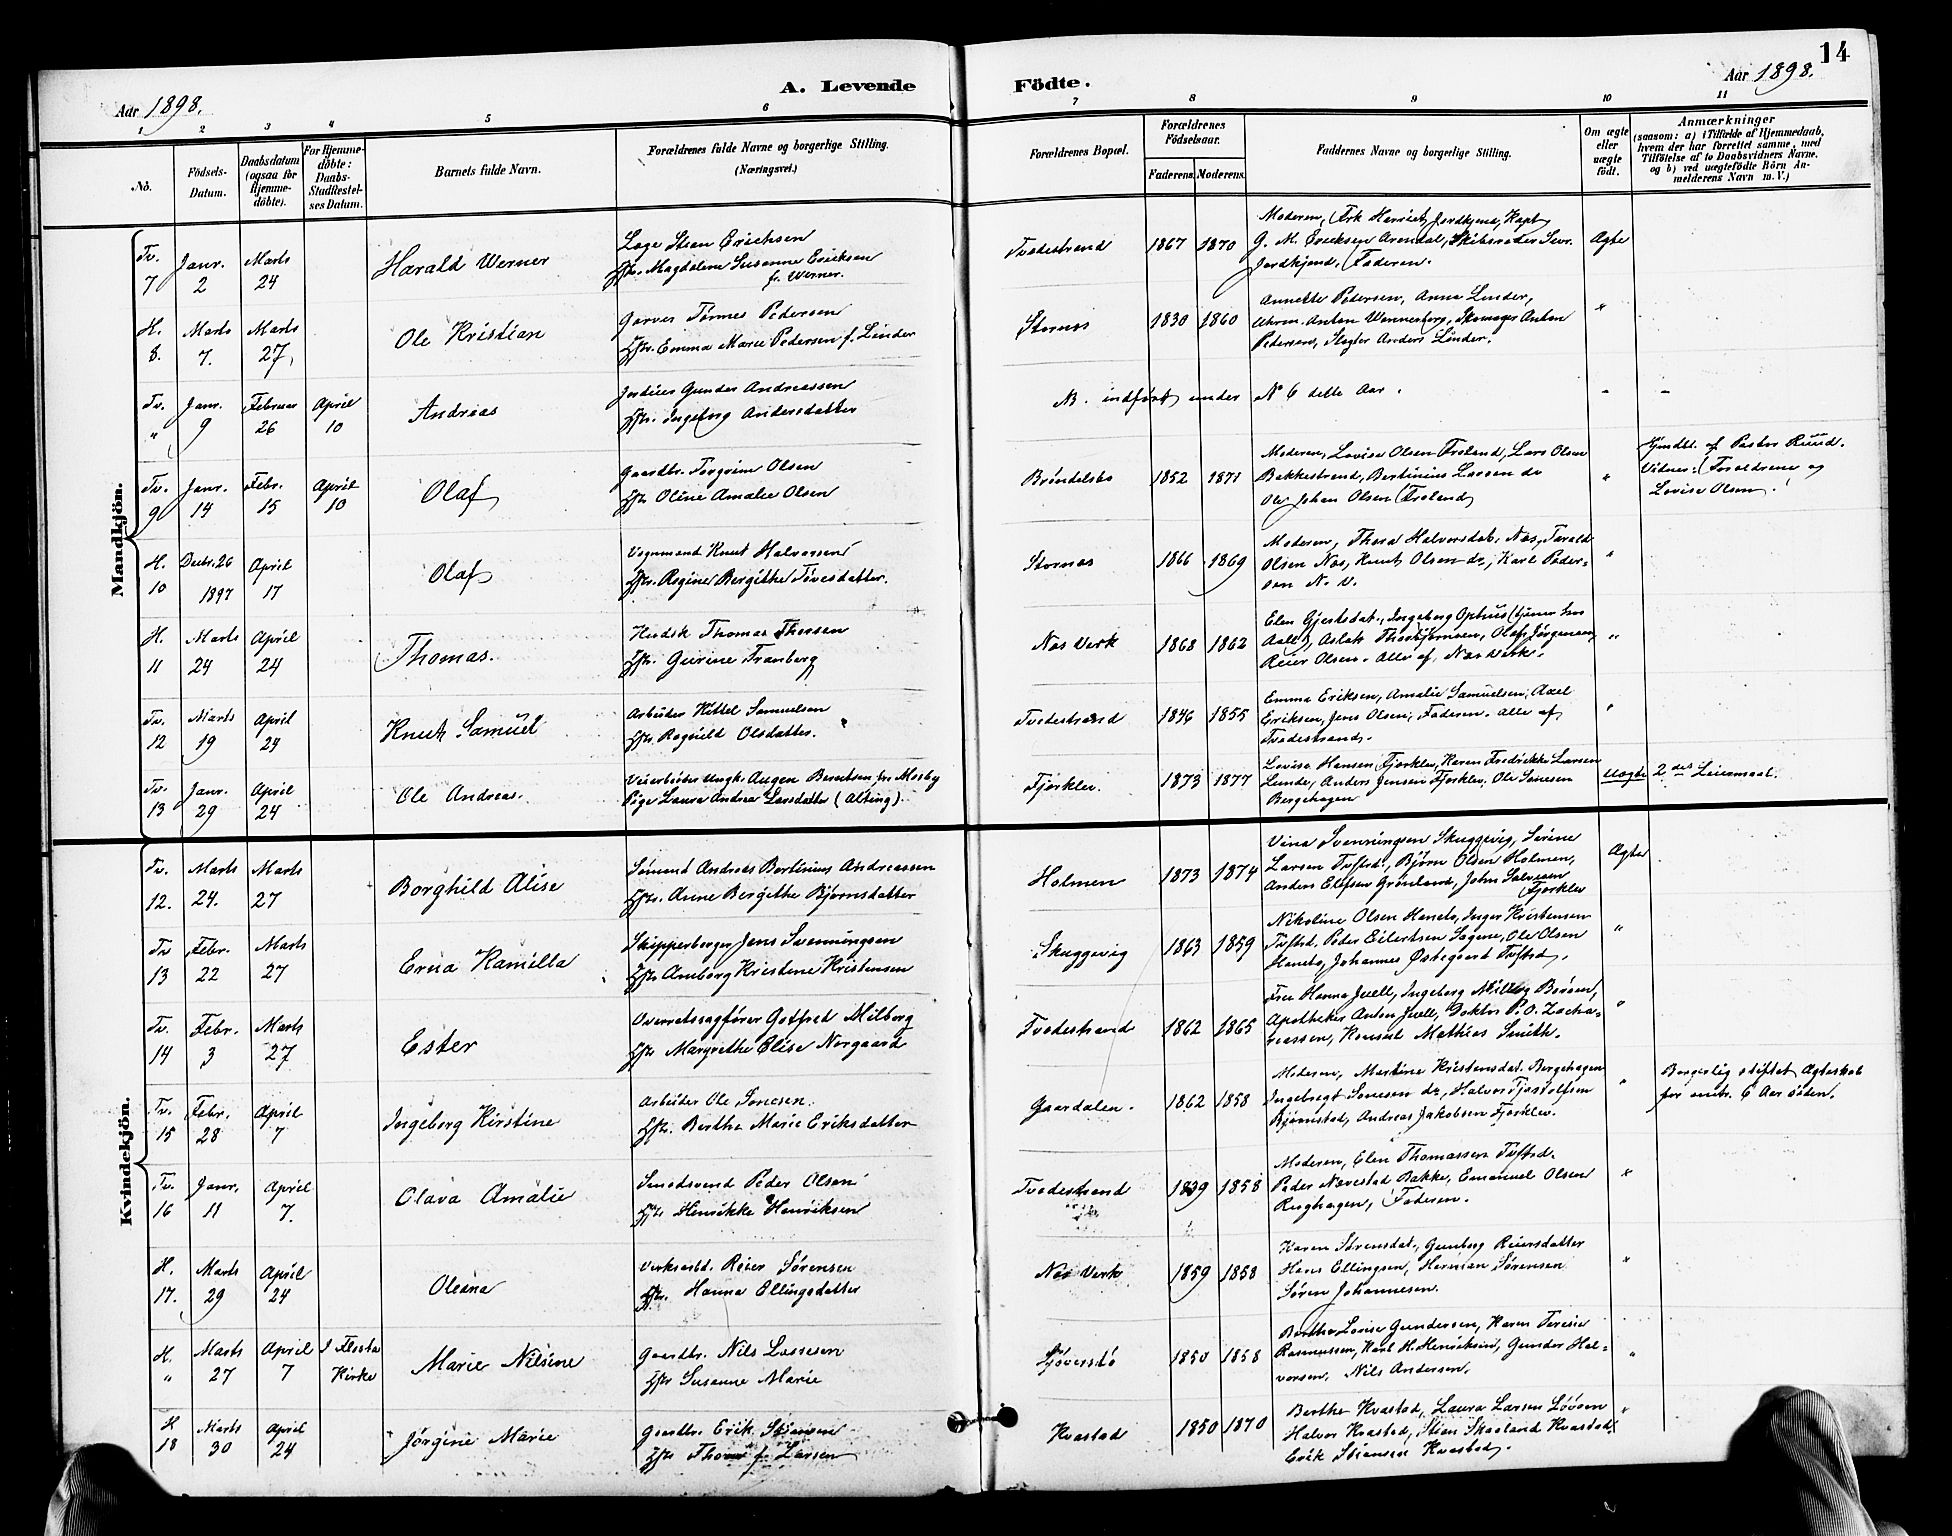 14
Aar 1898.
A. Levende
Födte.
Aar 1898.
1 2 3 4 5 6 7 8 9 10 11
No.
Födsels-Datum.
Daabsdatum (ogsaa for Hjemme-döbte).
For Hjemme-döbte: Daabs-Stadfestel-ses Datum.
Barnets fulde Navn.
Forældrenes fulde Navne og borgerlige Stilling. (Næringsvei.)
Forældrenes Bopæl.
Forældrenes Födselsaar.
Faderens. Moderens.
Faddernes Navne og borgerlige Stilling.
Om ægte eller uægte födt.
Anmærkninger
(saasom: a) i Tilfælde af Hjemmedaab,
hvem der har forrettet samme, med
Tilföielse af to Daabsvidners Navne.
og b) ved uægtefödte Börn An-
melderens Navn m. V.)
Mandkjön.
Tv. 7 Janr. 2 Marts 24 Harald Werner
Loge Stian Erichsen
Hstr. Magdalena Susanne Ericksen f. Werner.
Tvedestrand 1867 1870
Moderen, Frk Harriet Jordkjend, Kapt
G. M. Ericksen Arendal, Skibsreder Sevr.
Jordkjend, Faderen.
Ægte
H. 8. Marts 7. Marts 27, Ole Kristian
Garver Tørmes Pedersen
Hstr. Emma Marie Pedersen f. Linder
Stornæs 1830 1860
Annette Pedersen, Anna Linder,
Uhrm. Anton Wennerberg, Skomager Anton
Pedersen, Slagter Anders Linder.
"
Tv. " Janr. 9 Februar 26 April 10 Andreas
Jordeier Gunder Andreassen
Hstr. Ingeborg Andersdatter
NB. indført under No 6 dette Aar.
- -
Tv. 9 Janr. 14 Febr. 15 April 10 Olaf
Gaardbr. Torgrim Olsen
Hstr Oline Amalie Olsen
Brøndalsbo 1852 1871
Moderen, Lovise Olsen Froland, Lars Olsen
Bakkestrand, Bertinius Larsen do
Ole Johan Olsen Froland
"
Hjmdbt. af Pastor Ruud.
Vidner: Forældrene og
Lovise Olsen.
H. 10 Decbr. 26 1897 April 17 Olaf
Vognmand Knut Halvorsen
Hstr. Regine Bergithe Tovesdatter.
Stornæs 1866 1869
Moderen, Thora Halvorsdat. Næs, Tarald
Olsen Næs, Knut Olsen do, Karl Peder-
sen N. V.
"
H. 11 Marts 24 April 24 Thomas.
Thomas Thorsen
Hstr. Gurine Tranberg
Næs Verk 1868 1862
Elen Gjertsdat., Ingeborg Ophus (tjener hos
Aall), Aslak Thorbjørnsen, Olaf Jørgensen,
Reier Olsen. Alle af Næs Verk.
"
Tv. 12 Marts 19 April 24 Knut Samuel
Arbeider Kittel Samuelsen
Hstr. Ragnild Olsdatter.
Tvedestrand 1846 1855
Emma Eriksen, Amalie Samuelsen, Axel
Eriksen, Jens Olsen, Faderen. Alle af
Tvedestrand.
"
Tv. 13 Janr. 29 April 24 Ole Andreas.
Veiarbeider Ungk. Augen Berntsen fra Mosby
Pige Laura Andrea Larsdatter (Alting).
Fjørklev. 1873 1877
Lovise Hansen Fjørklev, Karen Fredrikke Larsen
Lunde, Anders Jensen Fjørklev, Ole Sønesen
Bergehagen
Uægte 2det Leiermaal.
Kvindekjön.
Tv. 12. Marts 24. Marts 27 Borghild Alise
Sømand Andreas Bertinius Andreassen
Hstr. Anne Bergithe Bjørnsdatter
Holmen 1873 1874
Vina Svenningsen Skuggevig, Serine
Larsen Tvftrd., Bjørn Olsen Holmen,
Anders Olafsen Grønland, John Salvesen
Fjorklev
Ægte
Tv 13 Febr. 22 Marts 27 Erna Kamilla
Skipperborger Jens Svenningsen
Hstr Amborg Kristine Kristensen
Skuggevig 1863 1859
Nikoline Olsen Hanto, Inger Kristensen
Tvftrd, Peder Eilertsen Sagene, Ole Olsen
Hanto, Johannes Østegaard Tvftrd.
"
Tv. 14 Febr. 3 Marts 27 Ester
Overretssagfører Gotfred Milberg
Hstr Margrethe Elise Nørgaard
Tvedestrand 1862 1865
Fru Hanna Juell, Ingeborg Milberg Borøen,
Apotheker Anton Juell, Doktor P. O. Zacha-
riassen, Konsul Mathias Smith.
"
Tv. 15 Febr. 28 April 7 Ingeborg Kirstine
Arbeider Ole Sønesen.
Hstr. Berthe Marie Eriksdatter
Gaardalen. 1862 1858
Moderen, Martine Kristensdat. Bergehagen
Ingebregt Sonesen do, Halvor Tjøstolfsen
Bjørnstad, Andreas Jakobsen Fjorklev.
"
Borgerlig stiftet Ægteskab
for omtr. 6 Aar siden.
Tv. 16 Janr. 11 April 7. Olava Amalie
Smedsvend Peder Olsen
Hstr Henrikke Henriksen
Tvedestrand 1839 1858
Moderen, Elen Thomassen Tvftrd.
Peder Navestad Bakke, Emanuel Olsen
Rughagen, Faderen.
"
H. 17. Marts 29 April 24 Oleana
Verksarbd. Reier Sørensen
Hstr. Hanna Ellingsdatter
Næs Verk 1859 1858
Karen Sørensdat., Gunborg Reiersdatter
Hans Ellingsen, Herman Sørensen
Søren Johannesen.
"
H. " Marts 27 April 7 I Flosta Kirke Marie Nilsine
Gaardbr. Nils Lassesen
Hstr Susanne Marie
Sjøverstø 1850 1858
Berthe Lovise Gundersen, Karen Teresie
Rasmussen, Karl H. Henriksen, Gunder Hal-
vorsen, Nils Andersen.
"
H 18 Marts 30 April 24 Jørgine Marie
Gaardbr. Erik Stiansen
Hstr f. Larsen
Kvastad 1850 1870
Berthe Kvastad, Laura Larsen Løvsen
Halvor Kvastad, Stian Skaaland Kvastad,
Erik Stiansen Kvastad.
"